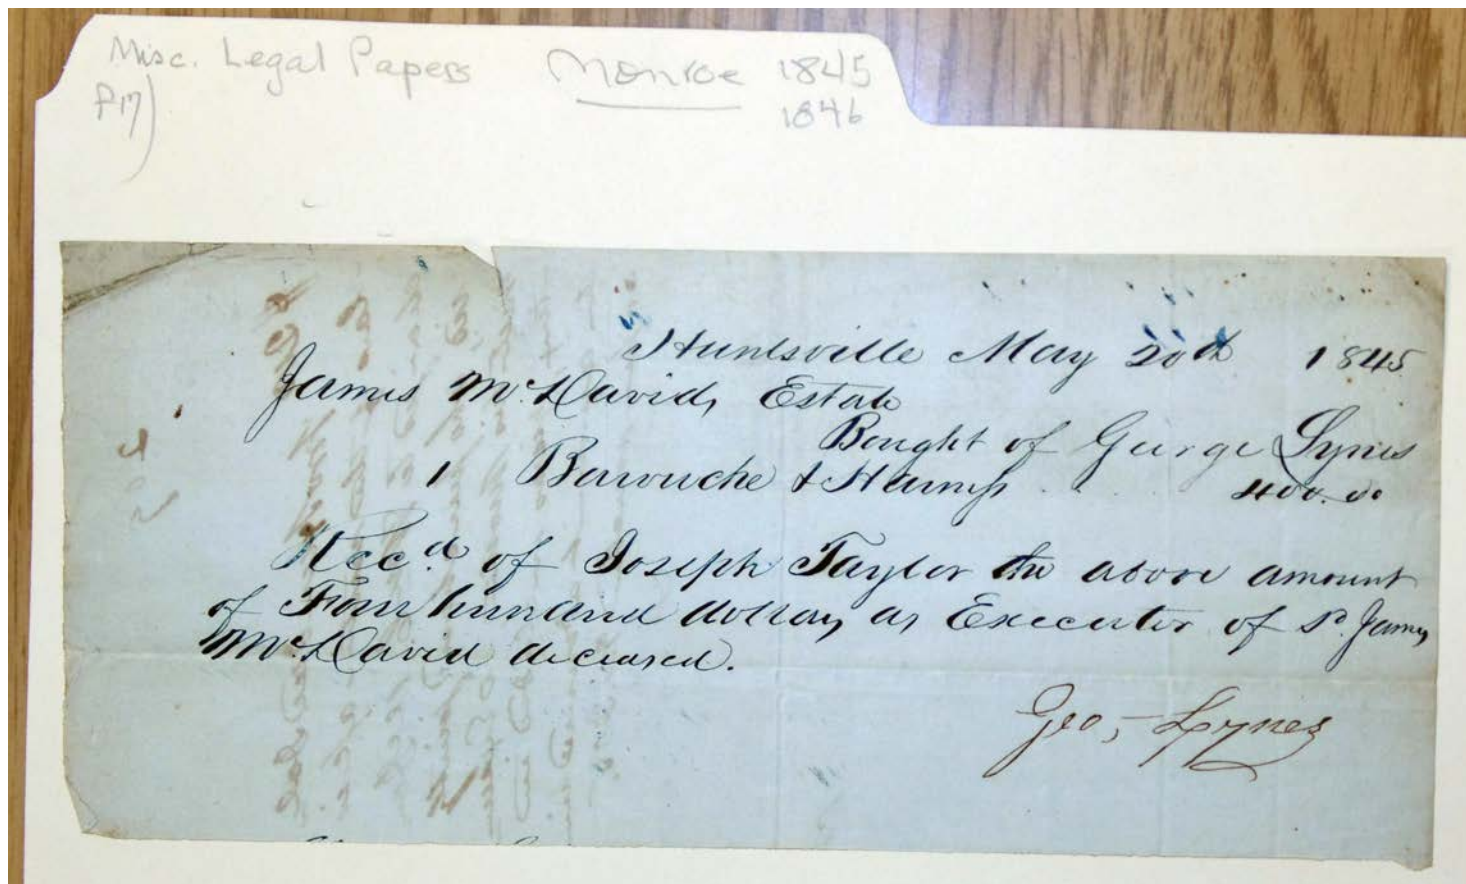 Misc. Legal Papers Monroe 1845
P17) 1846
Huntsville May 20th 1845
James McDavid, Estate
Bought of George Lynes
1 Barouche & Harness . . 400.00
Recd. of Joseph Taylor the above amount
of Four hundred dollars as Executor of sd. James
McDavid deceased.
Geo, Lynes